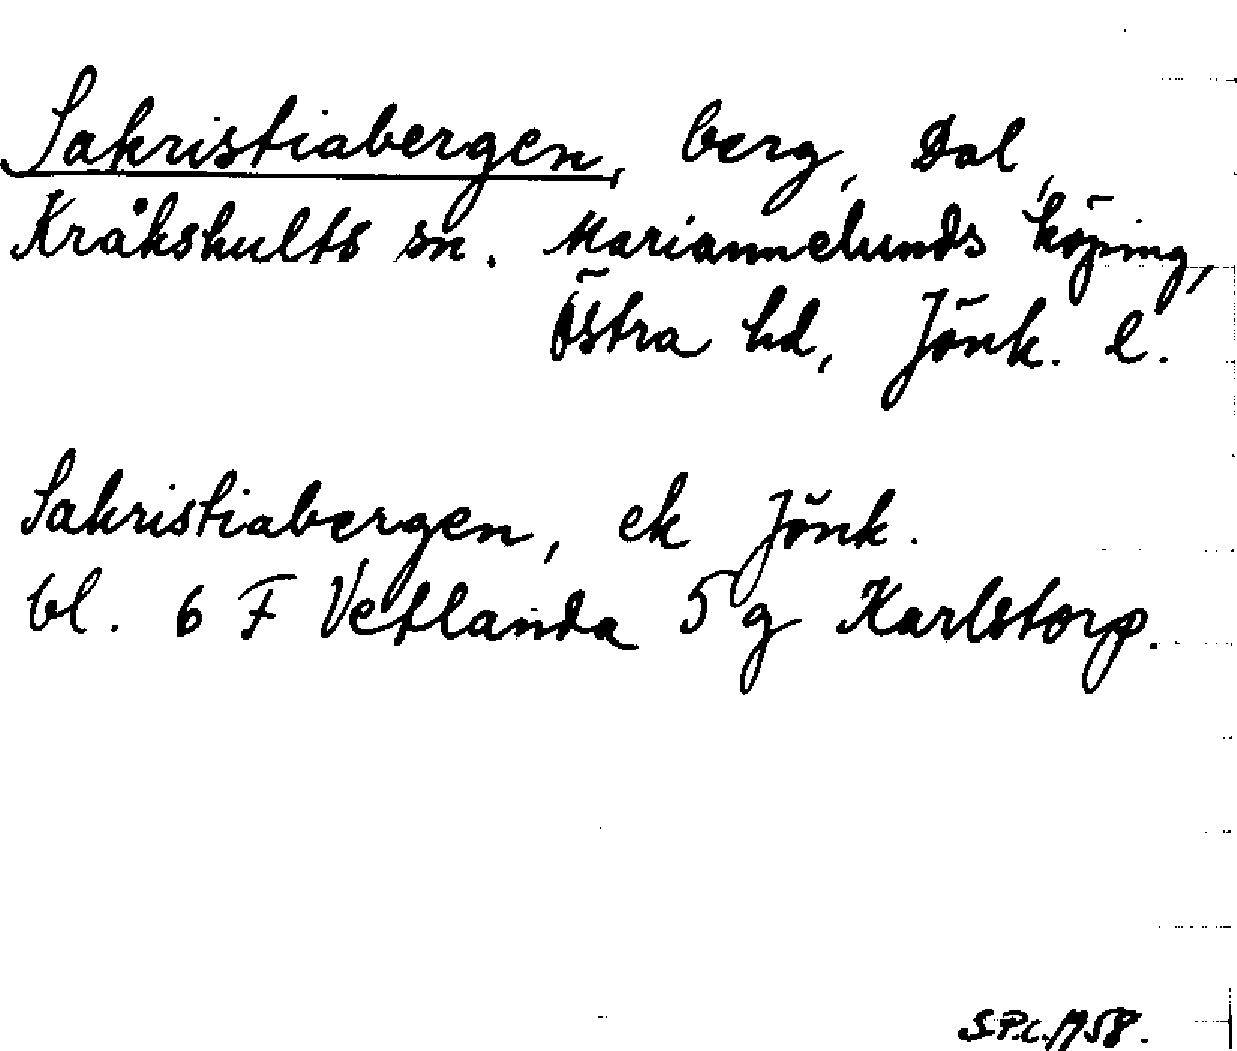 Sakristiabergen, berg, Dal,
Kråkshults sn. Mariannelunds köping,
Östra hd, Jönk. l.
Sakristiabergen, ek Jönk.
bl. 6 F Vetlanda 5 g Karlstorp.
S.P.C. 1958.